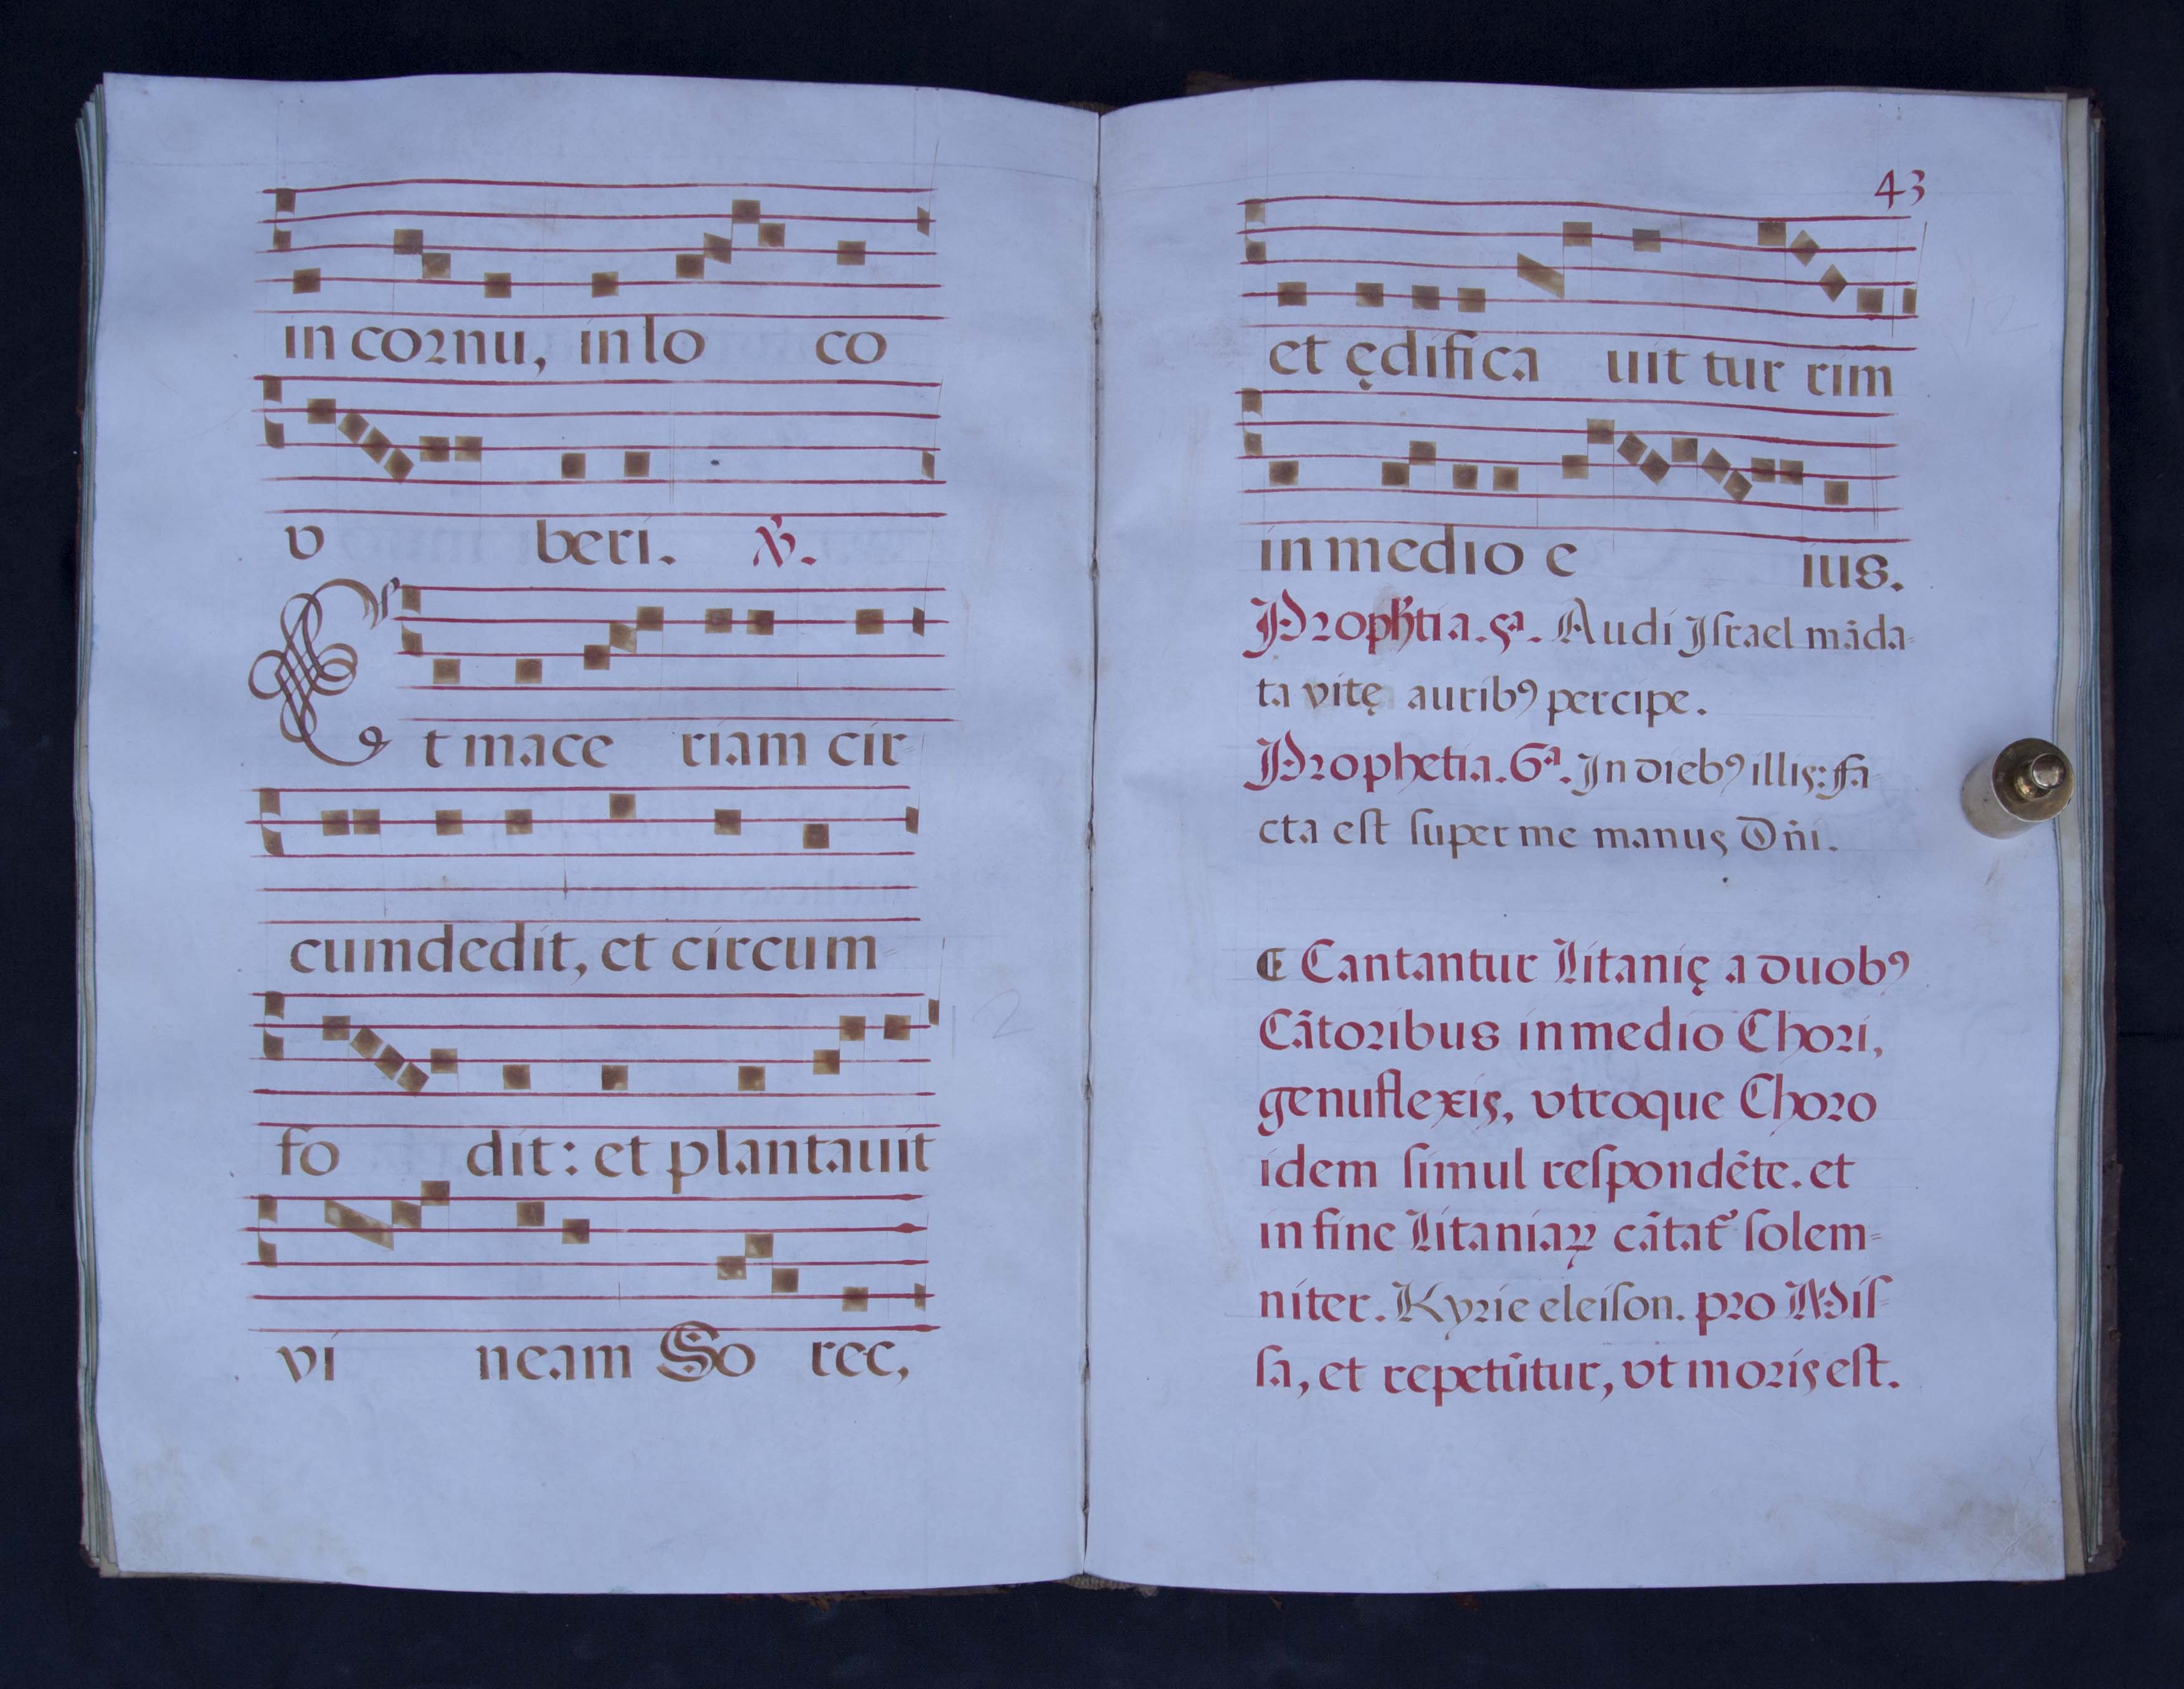 in cornu, in lo co
v beri. ℣.
Et mace riam cir-
cumdedit, et circum-
fo dit: et plantauit
vi neam So rec,
43
et ędifica uit tur rim
in medio e ius.
Prophtia. 5ª. Audi Israel mãda-
ta vitę auribꝰ percipe.
Prophetia. 6ª. In diebꝰ illis: fa-
cta est super me manus Dñi.
¶ Cantantur Litanię a duobꝰ
Cãtoribus in medio Chori,
genuflexis, vtroque Choro
idem simul respondẽte. et
in fine Litaniaꝝ cãtat᷑ solem-
niter. Kyrie eleison. pro Mis-
sa, et repetũtur, vt moris est.